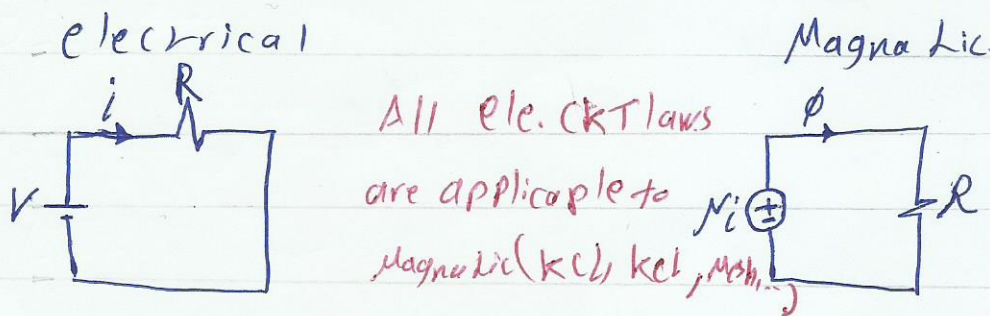 electrical
Magnatic
i
R
V
All ele. CKT laws
are applicaple to
Magnatic (KCL, KCL, Mesh, ...)
φ
Ni
R